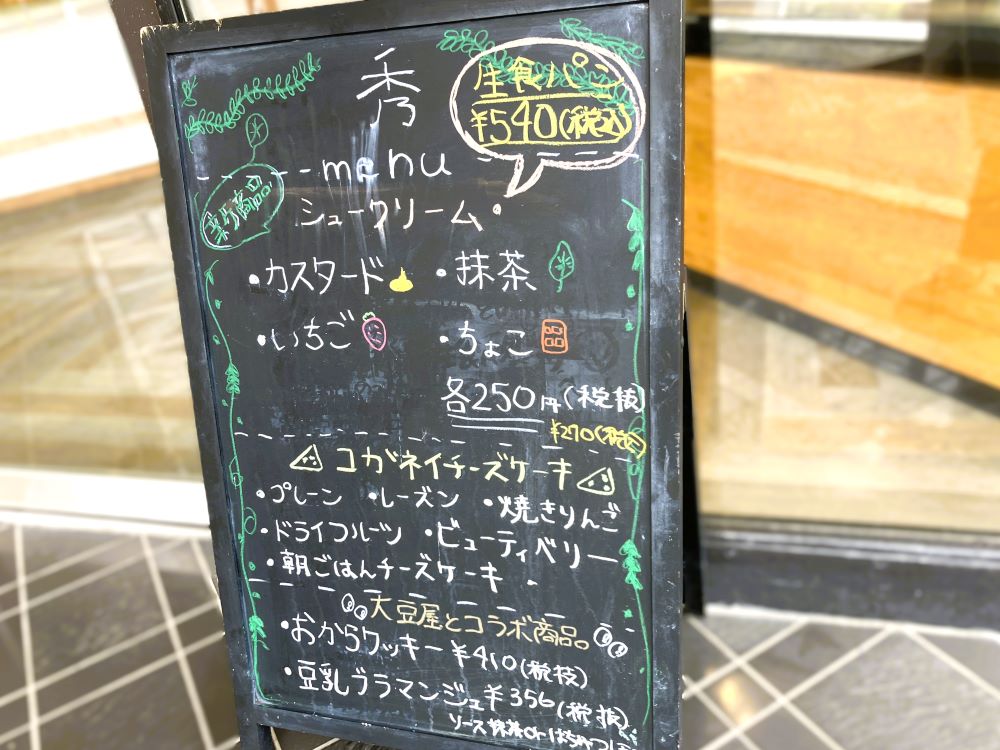 秀
生食パン
¥540(税込)
menu
新商品
シュークリーム
・カスタード ・抹茶
・いちご ・ちょこ
各250円(税抜)
¥270(税込)
コガネイチーズケーキ
・プレーン ・レーズン ・焼きりんご
・ドライフルーツ ・ビューティベリー
・朝ごはんチーズケーキ
大豆屋とコラボ商品。
・おからクッキー ¥410(税抜)
・豆乳ブラマンジュ ¥356(税抜)
ソース抹茶or